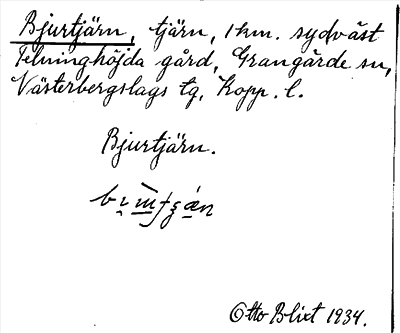 Bjurtjärn, tjärn, 1 km. sydväst
Pelninghöjda gård, Grangärde sn,
Västerbergslags tg, Kopp. l.
Bjurtjärn.
Otto Blixt 1934.